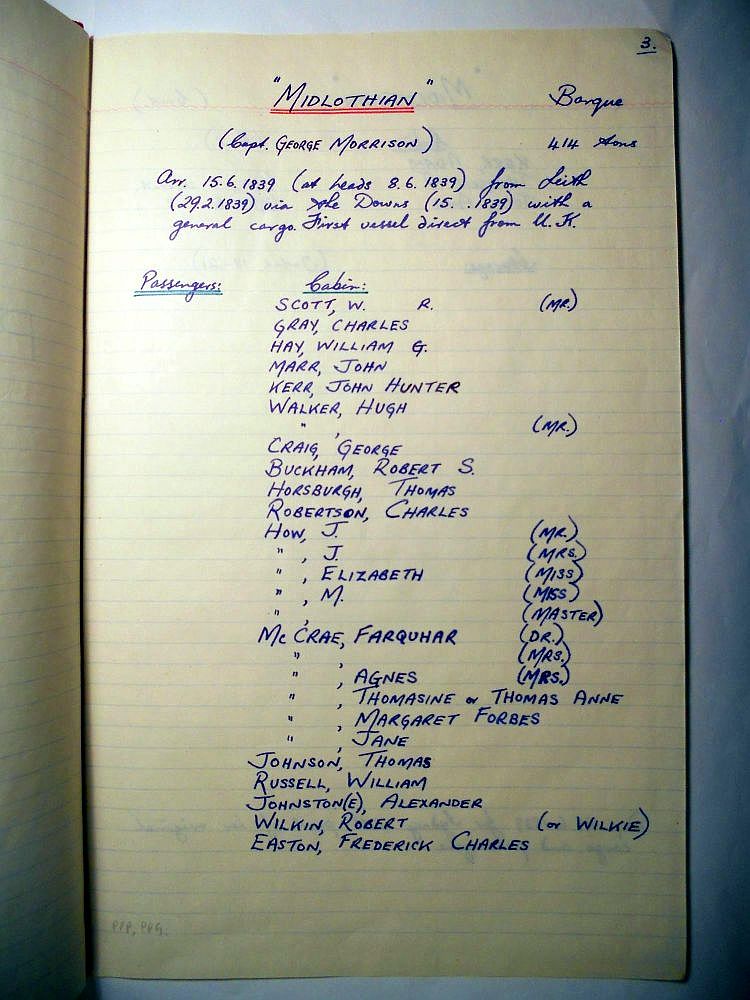 3.
"MIDLOTHIAN" Barque
(Capt. GEORGE MORRISON) 414 tons
Arr. 15.6.1839 (at heads 8.6.1839) from Leith
(29.2.1839) via the Downs (15. .1839) with a
general cargo. First vessel direct from U.K.
Passengers: Cabin:
SCOTT, W. R. (MR.)
GRAY, CHARLES
HAY, WILLIAM G.
MARR, JOHN
KERR, JOHN HUNTER
WALKER, HUGH
" , (MR.)
CRAIG, GEORGE
BUCKHAM, ROBERT S.
HORSBURGH, THOMAS
ROBERTSON, CHARLES
HOW, J. (MR.)
" , J. (MRS.)
" , ELIZABETH (MISS)
" , M. (MISS)
" , (MASTER)
McCRAE, FARQUHAR (DR.)
" , (MRS.)
" , AGNES (MRS.)
" , THOMASINE or THOMAS ANNE
" , MARGARET FORBES
" , JANE
JOHNSON, THOMAS
RUSSELL, WILLIAM
JOHNSTON(E), ALEXANDER
WILKIN, ROBERT (or WILKIE)
EASTON, FREDERICK CHARLES